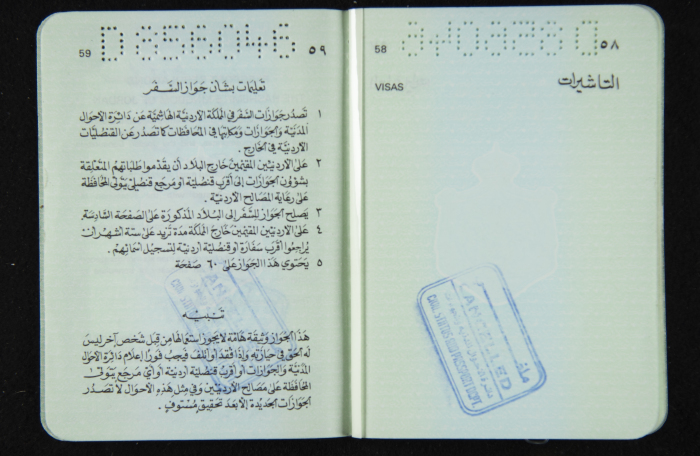 59
D 656046
٥٩
تعليمات بشأن جواز السفر
١ تصدر جوازات السفر في المملكة الأردنية الهاشمية عن دائرة الأحوال
المدنية والجوازات ومكاتبها في المحافظات كما تصدر عن القنصليات
الأردنية في الخارج .
٢ على الأردنيين المقيمين خارج البلاد أن يقدموا طلباتهم المتعلقة
بشؤون الجوازات إلى أقرب قنصلية او مرجع قنصلي يتولى المحافظة
على رعاية المصالح الأردنية .
٣ يصلح الجواز للسفر إلى البلاد المذكورة على الصفحة السادسة.
٤ على الأردنيين المقيمين خارج المملكة مدة تزيد على ستة اشهر ان
يراجعوا أقرب سفارة او قنصلية أردنية لتسجيل اسمائهم .
٥ يحتوي هذا الجواز على ٦٠ صفحة
تنبيه
هذا الجواز وثيقة هامة لا يجوز استعمالها من قبل شخص آخر ليس
له الحق في حيازته وإذا فقد او اتلف فيجب فورا إعلام دائرة الأحوال
المدنية والجوازات أو أقرب قنصلية أردنية أو أي مرجع يتولى
المحافظة على مصالح الأردنيين وفي مثل هذه الأحوال لا تصدر
الجوازات الجديدة إلا بعد تحقيق مستوف .
58
٥٨
VISAS
التاشيرات
ملغى
CANCELLED
CIVIL STATUS AND PASSPORT DEPT.